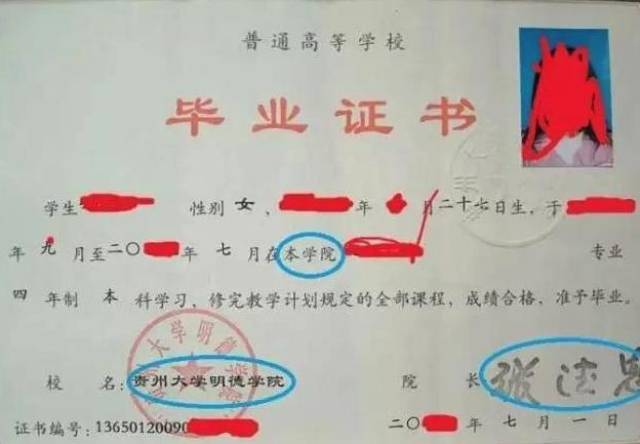 普通高等学校
毕业证书
学生 性别 女 , 年 月二十七日生, 于
年 九 月至二〇 年 七 月在本学院 专业
四 年制 本 科学习, 修完教学计划规定的全部课程, 成绩合格, 准予毕业。
校 名: 贵州大学明德学院 院 长
证书编号: 13650120090 二〇 年 七 月 一 日